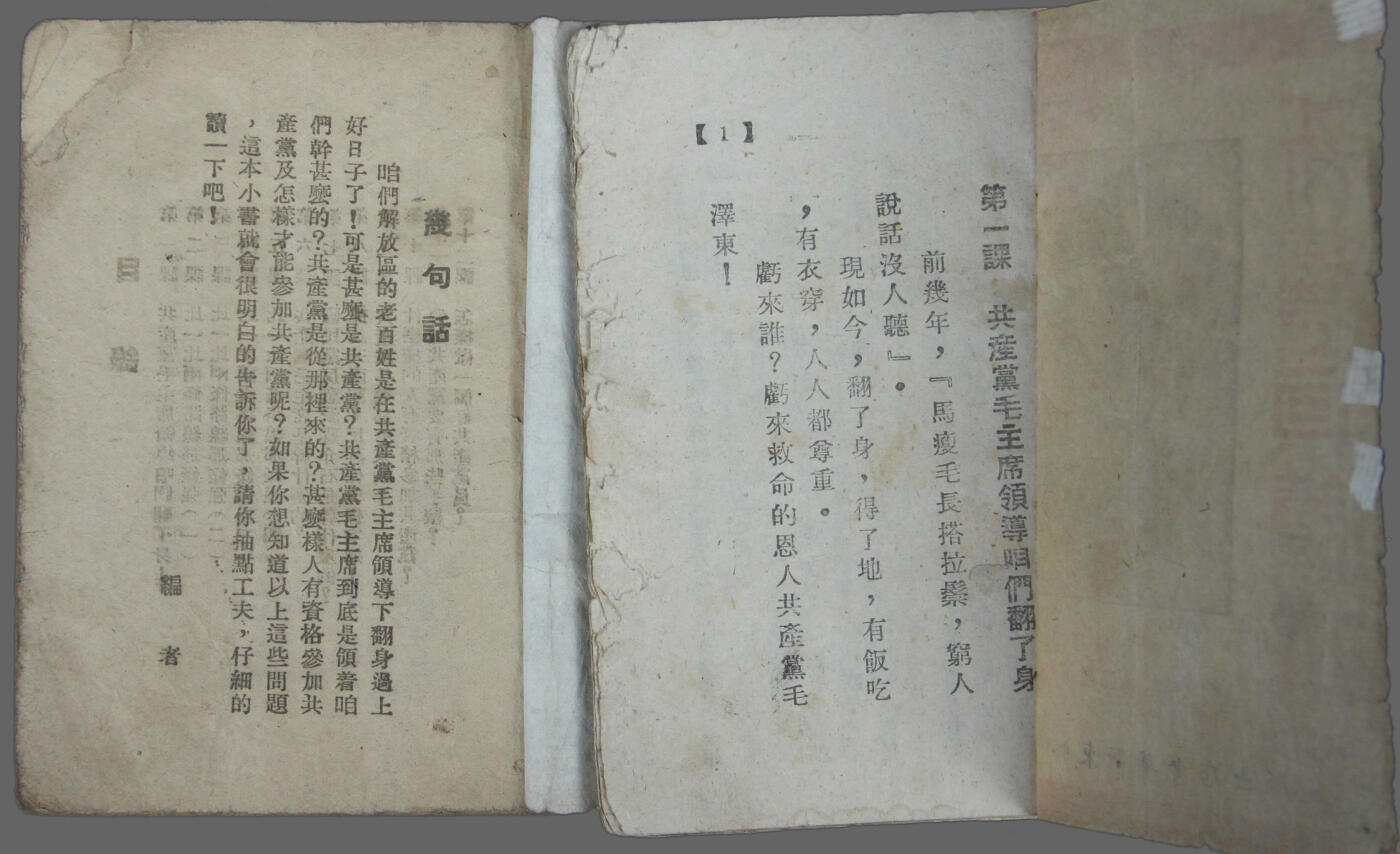 幾句話
咱們解放區的老百姓是在共產黨毛主席領導下翻身過上
好日子了！可是甚麼是共產黨？共產黨毛主席到底是領着咱
們幹甚麼的？共產黨是從那裡來的？甚麼樣人有資格參加共
產黨及怎樣才能參加共產黨呢？如果你想知道以上這些問題
，這本小書就會很明白的告訴你了，請你抽點工夫，仔細的
讀一下吧！
編者
第一課　共產黨毛主席領導咱們翻了身
前幾年，『馬瘦毛長搭拉鬃，窮人
說話沒人聽』。
現如今，翻了身，得了地，有飯吃
，有衣穿，人人都尊重。
虧來誰？虧來救命的恩人共產黨毛
澤東！
【1】